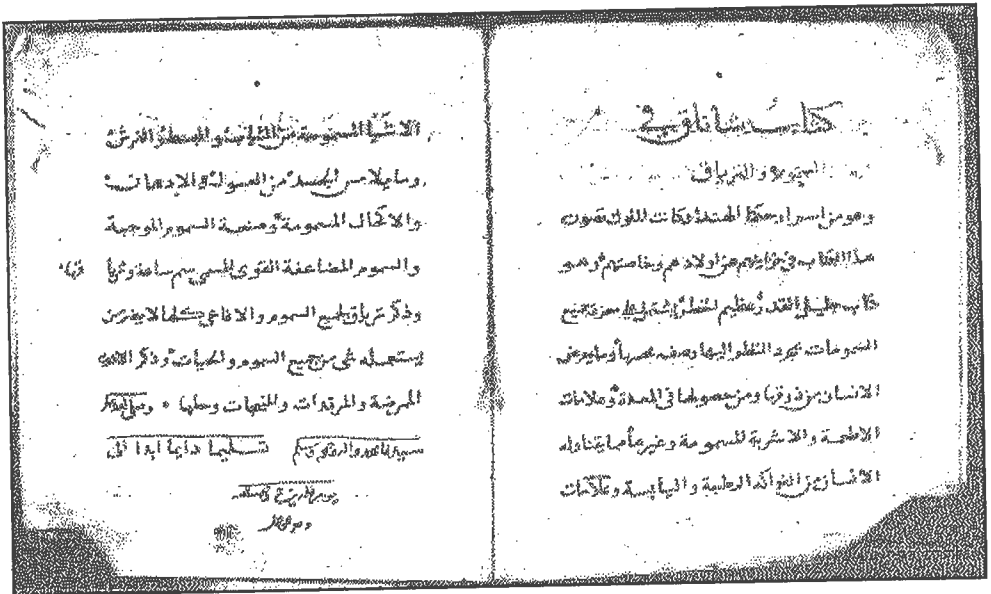 كتاب شاناق في
السموم والترياق
وهو من اسرار حكما الهند وكانت الملوك تصون
هذا الكتاب في خزاينهم عن اولادهم وخاصتهم وهو
كتاب جليل القدر عظيم الخطر يشتمل على معرفة جميع
المسمومات بمجرد النظر اليها وصف بعضها وما يعرض
الانسان من ذوقها ومن حصولها في المعدة وعلامات
الاطعمة والاشربة المسمومة وغيرها مما يتناوله
الانسان من الفواكه الرطبة واليابسة وعلامات
الاشيا المسمومة من الملابس والبسط والفرش
وما يلامس الجسد من الغسولات والادهانات
والاكحال المسمومة وصنعة السموم الموجبة
والسموم المضاعفة القوى المسمى سم ساعة
وذكر ترياق لجميع السموم والافاعي كلها لا يضر من
يستعمله شي من جميع السموم والحيات وذكر الادوية
الممرضة والمرقدات والمنبهات وحلها وصلى الله على
سيدنا محمد واله وصحبه وسلم تسليما دايما ابدا الى
يوم الدين